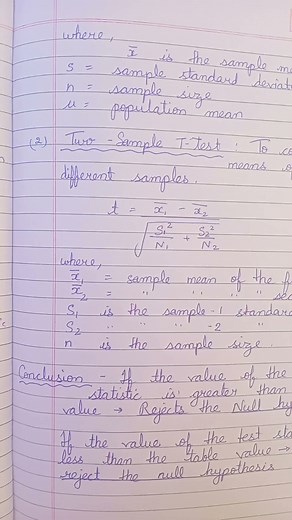 where,
x̄ is the sample
s = sample standard
n = sample size
u = population mean
(2) Two-Sample T-test : To
means
different samples.
t = x̄₁ - x̄₂
√ S₁²/N₁ + S₂²/N₂
where,
x̄₁ = sample mean of the
x̄₂ = " " " "
S₁ is the sample-1
S₂ " " " -2 "
n is the sample size.
Conclusion - If the value of the
statistic is greater than
value → Rejects the Null
If the value of the test
less than the table value →
reject the null hypothesis